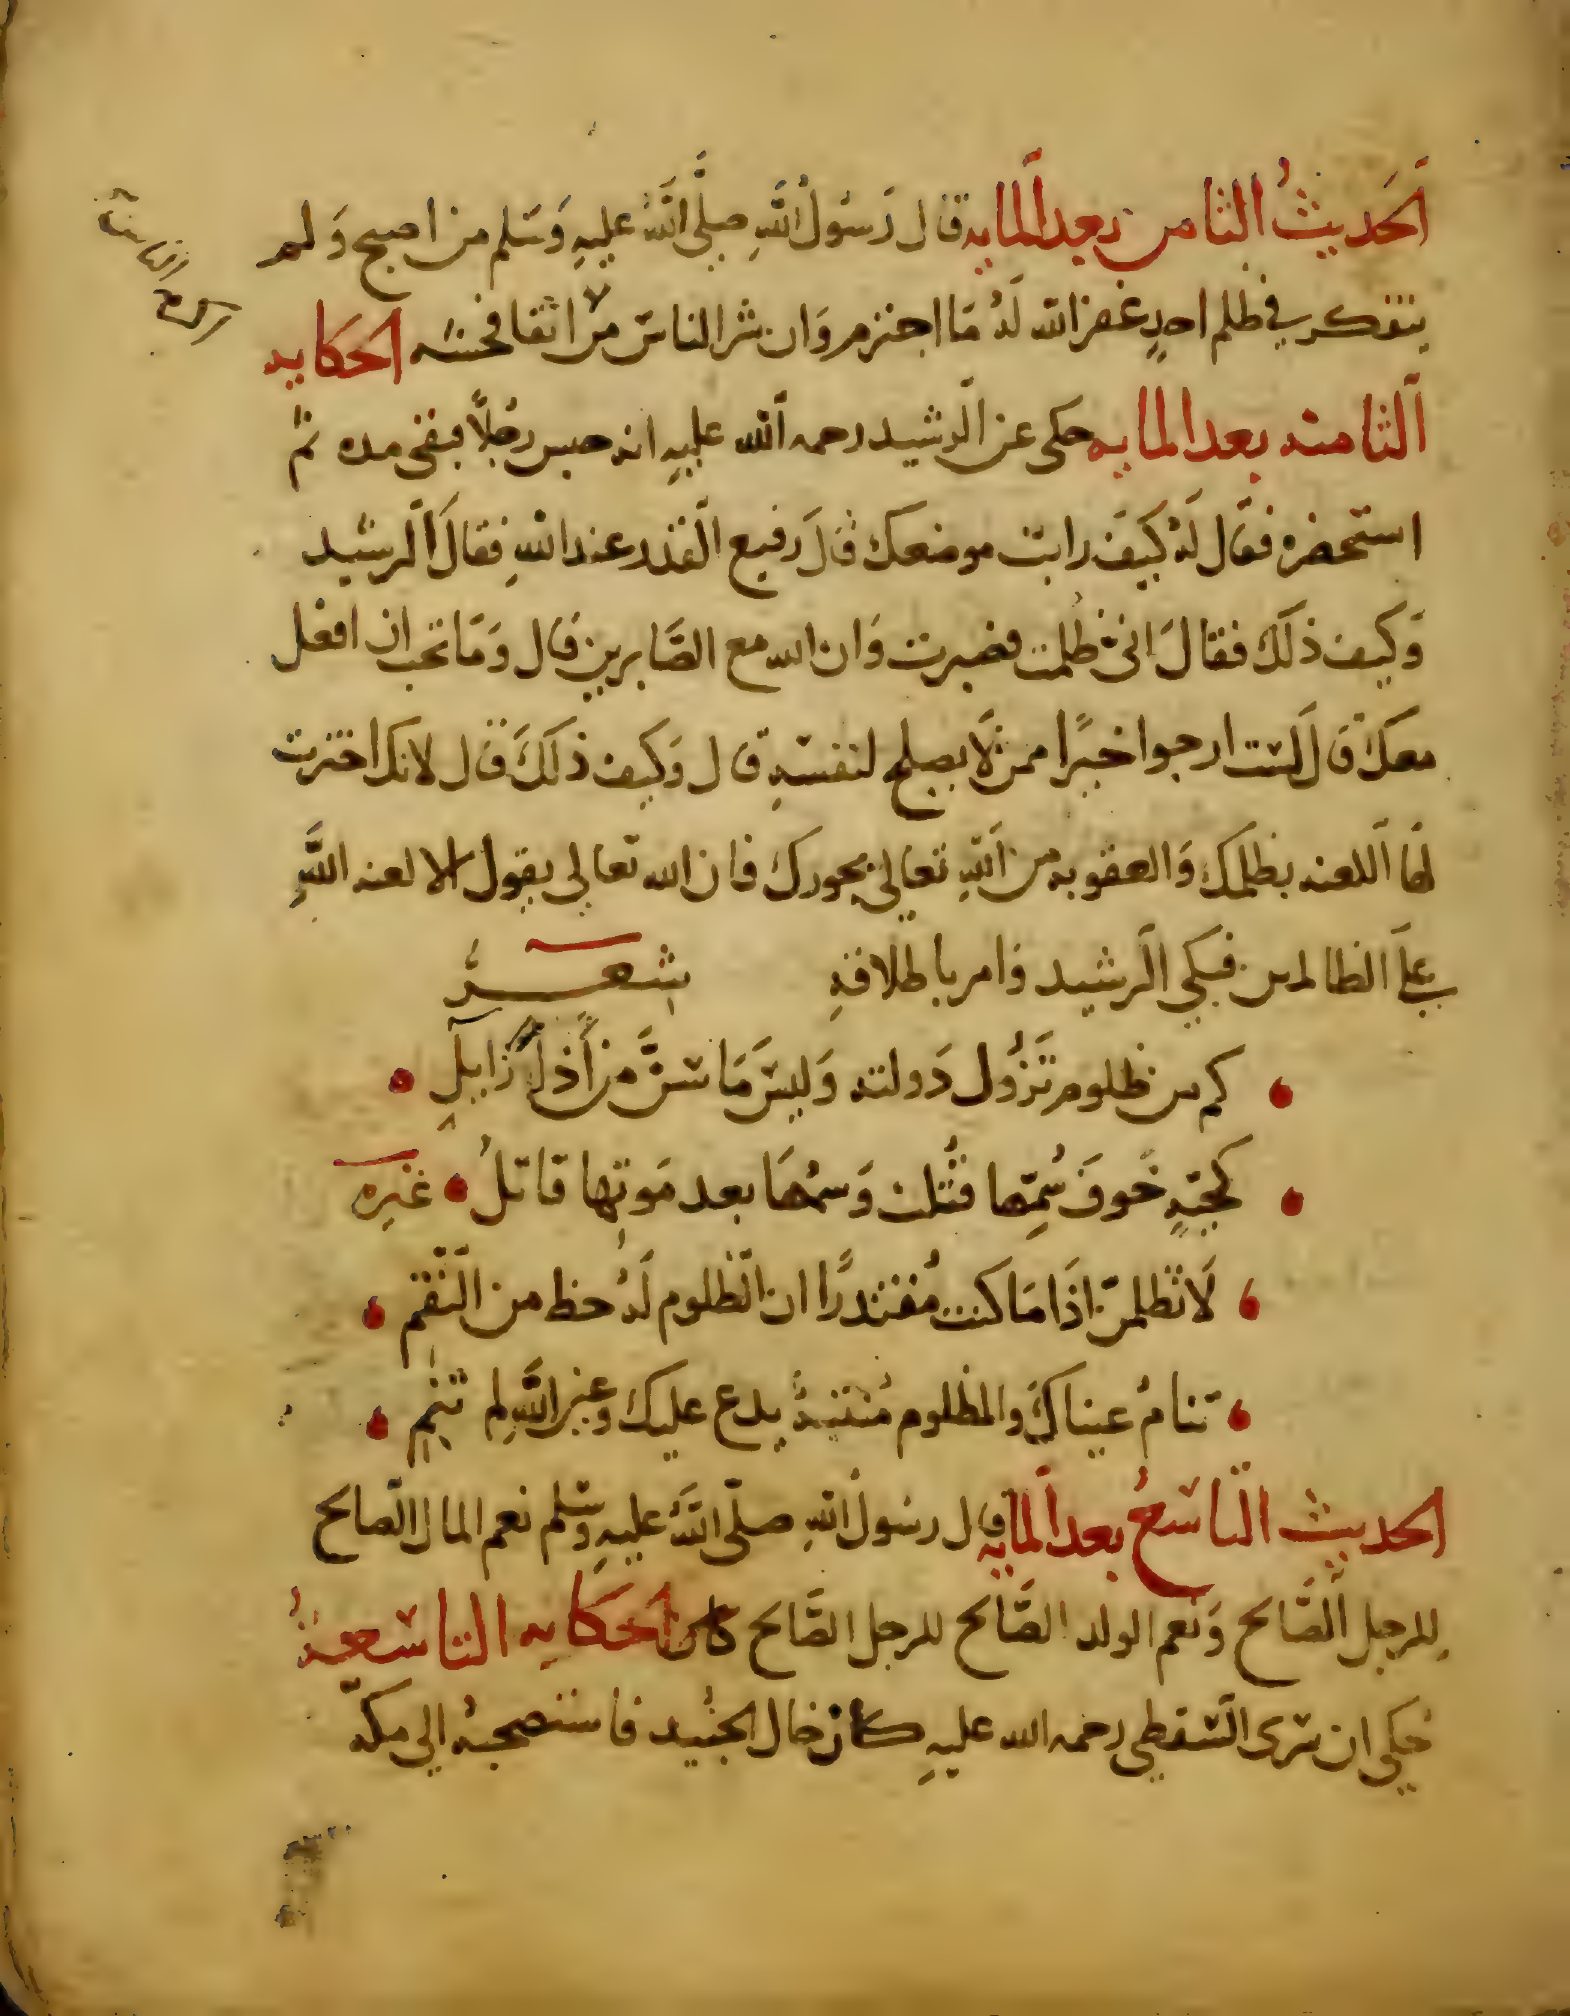 الحديث الثامن بعد المايه قال رسول الله صلى الله عليه وسلم من اصبح ولم
يتفكر في ظلم احد غفر الله له ما اجترم وان شر الناس من اتقا فحشه الحكايه
الثامنه بعد المايه حكى عن الرشيد رحمه الله عليه انه حبس رجلا فبقى مده ثم
استحضره فقال له كيف رايت موضعك قال رفيع القدر عند الله فقال الرشيد
وكيف ذلك فقال انى ظلمت فصبرت وان الله مع الصابرين قال وما تحب ان افعل
معك قال لست ارجوا خيرا ممن لا يصلح لنفسه قال وكيف ذلك قال لانك اخترت
لها اللعنه بظلمك والعقوبه من الله تعالى بجورك فان الله تعالى يقول الا لعنه الله
على الظالمين فبكى الرشيد وامر باطلاقه شعر
كم من ظلوم تزول دولته وليس ما سن من أذا زايل
كحية خوف سمها قتلت وسمها بعد موتها قاتل غيره
لا تظلمن اذا ما كنت مقتدرا ان الظلوم له حظ من النقم
تنام عيناك والمظلوم منتبه يدع عليك وعين الله لم تنم
الحديث التاسع بعد المايه قال رسول الله صلى الله عليه وسلم نعم المال الصالح
للرجل الصالح ونعم الولد الصالح للرجل الصالح الحكايه التاسعة
حكى ان سرى السقطي رحمه الله عليه كان خال الجنيد فاستصحبه الى مكة